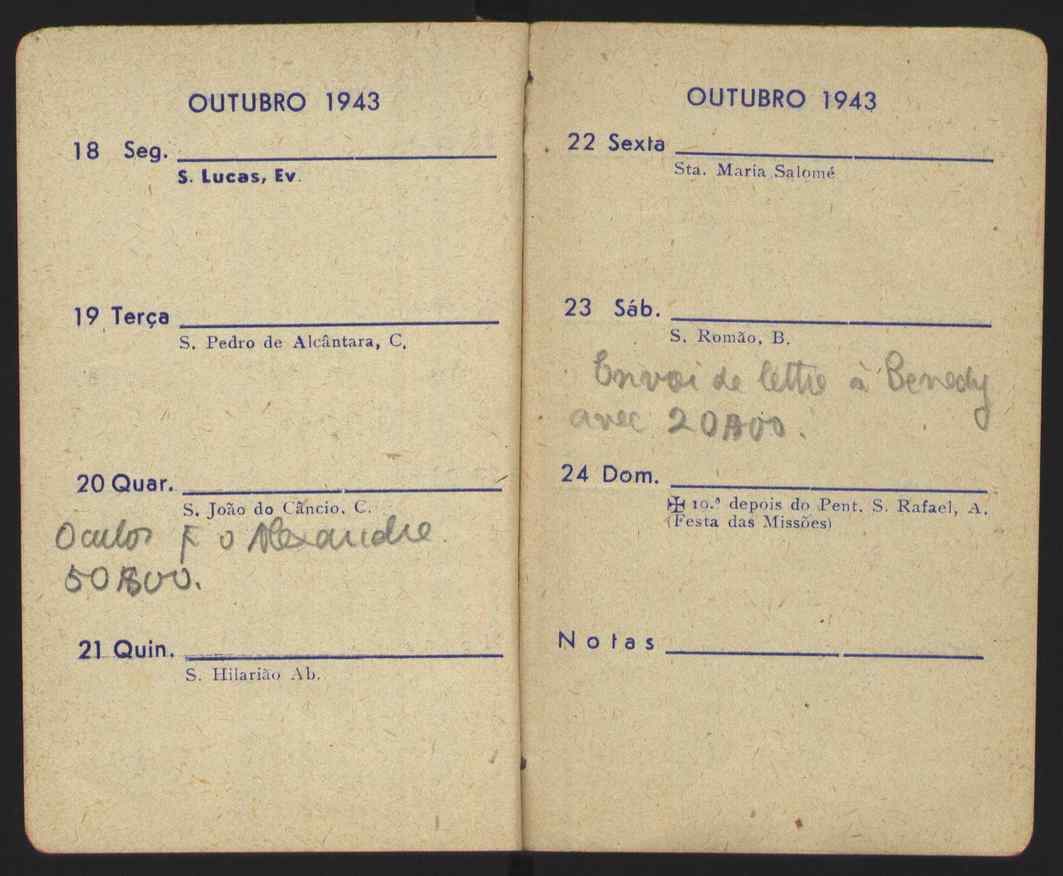 OUTUBRO 1943
18 Seg.
S. Lucas, Ev.
19 Terça
S. Pedro de Alcântara, C.
20 Quar.
S. João do Câncio. C.
Oculos o Alexandre.
50$00.
21 Quin.
S. Hilarião Ab.
OUTUBRO 1943
22 Sexta
Sta. Maria Salomé
23 Sáb.
S. Romão, B.
Envoi de lettre à Benedy
avec 20$00.
24 Dom.
✠ 19.ª depois do Pent. S. Rafael, A.
(Festa das Missões)
Notas